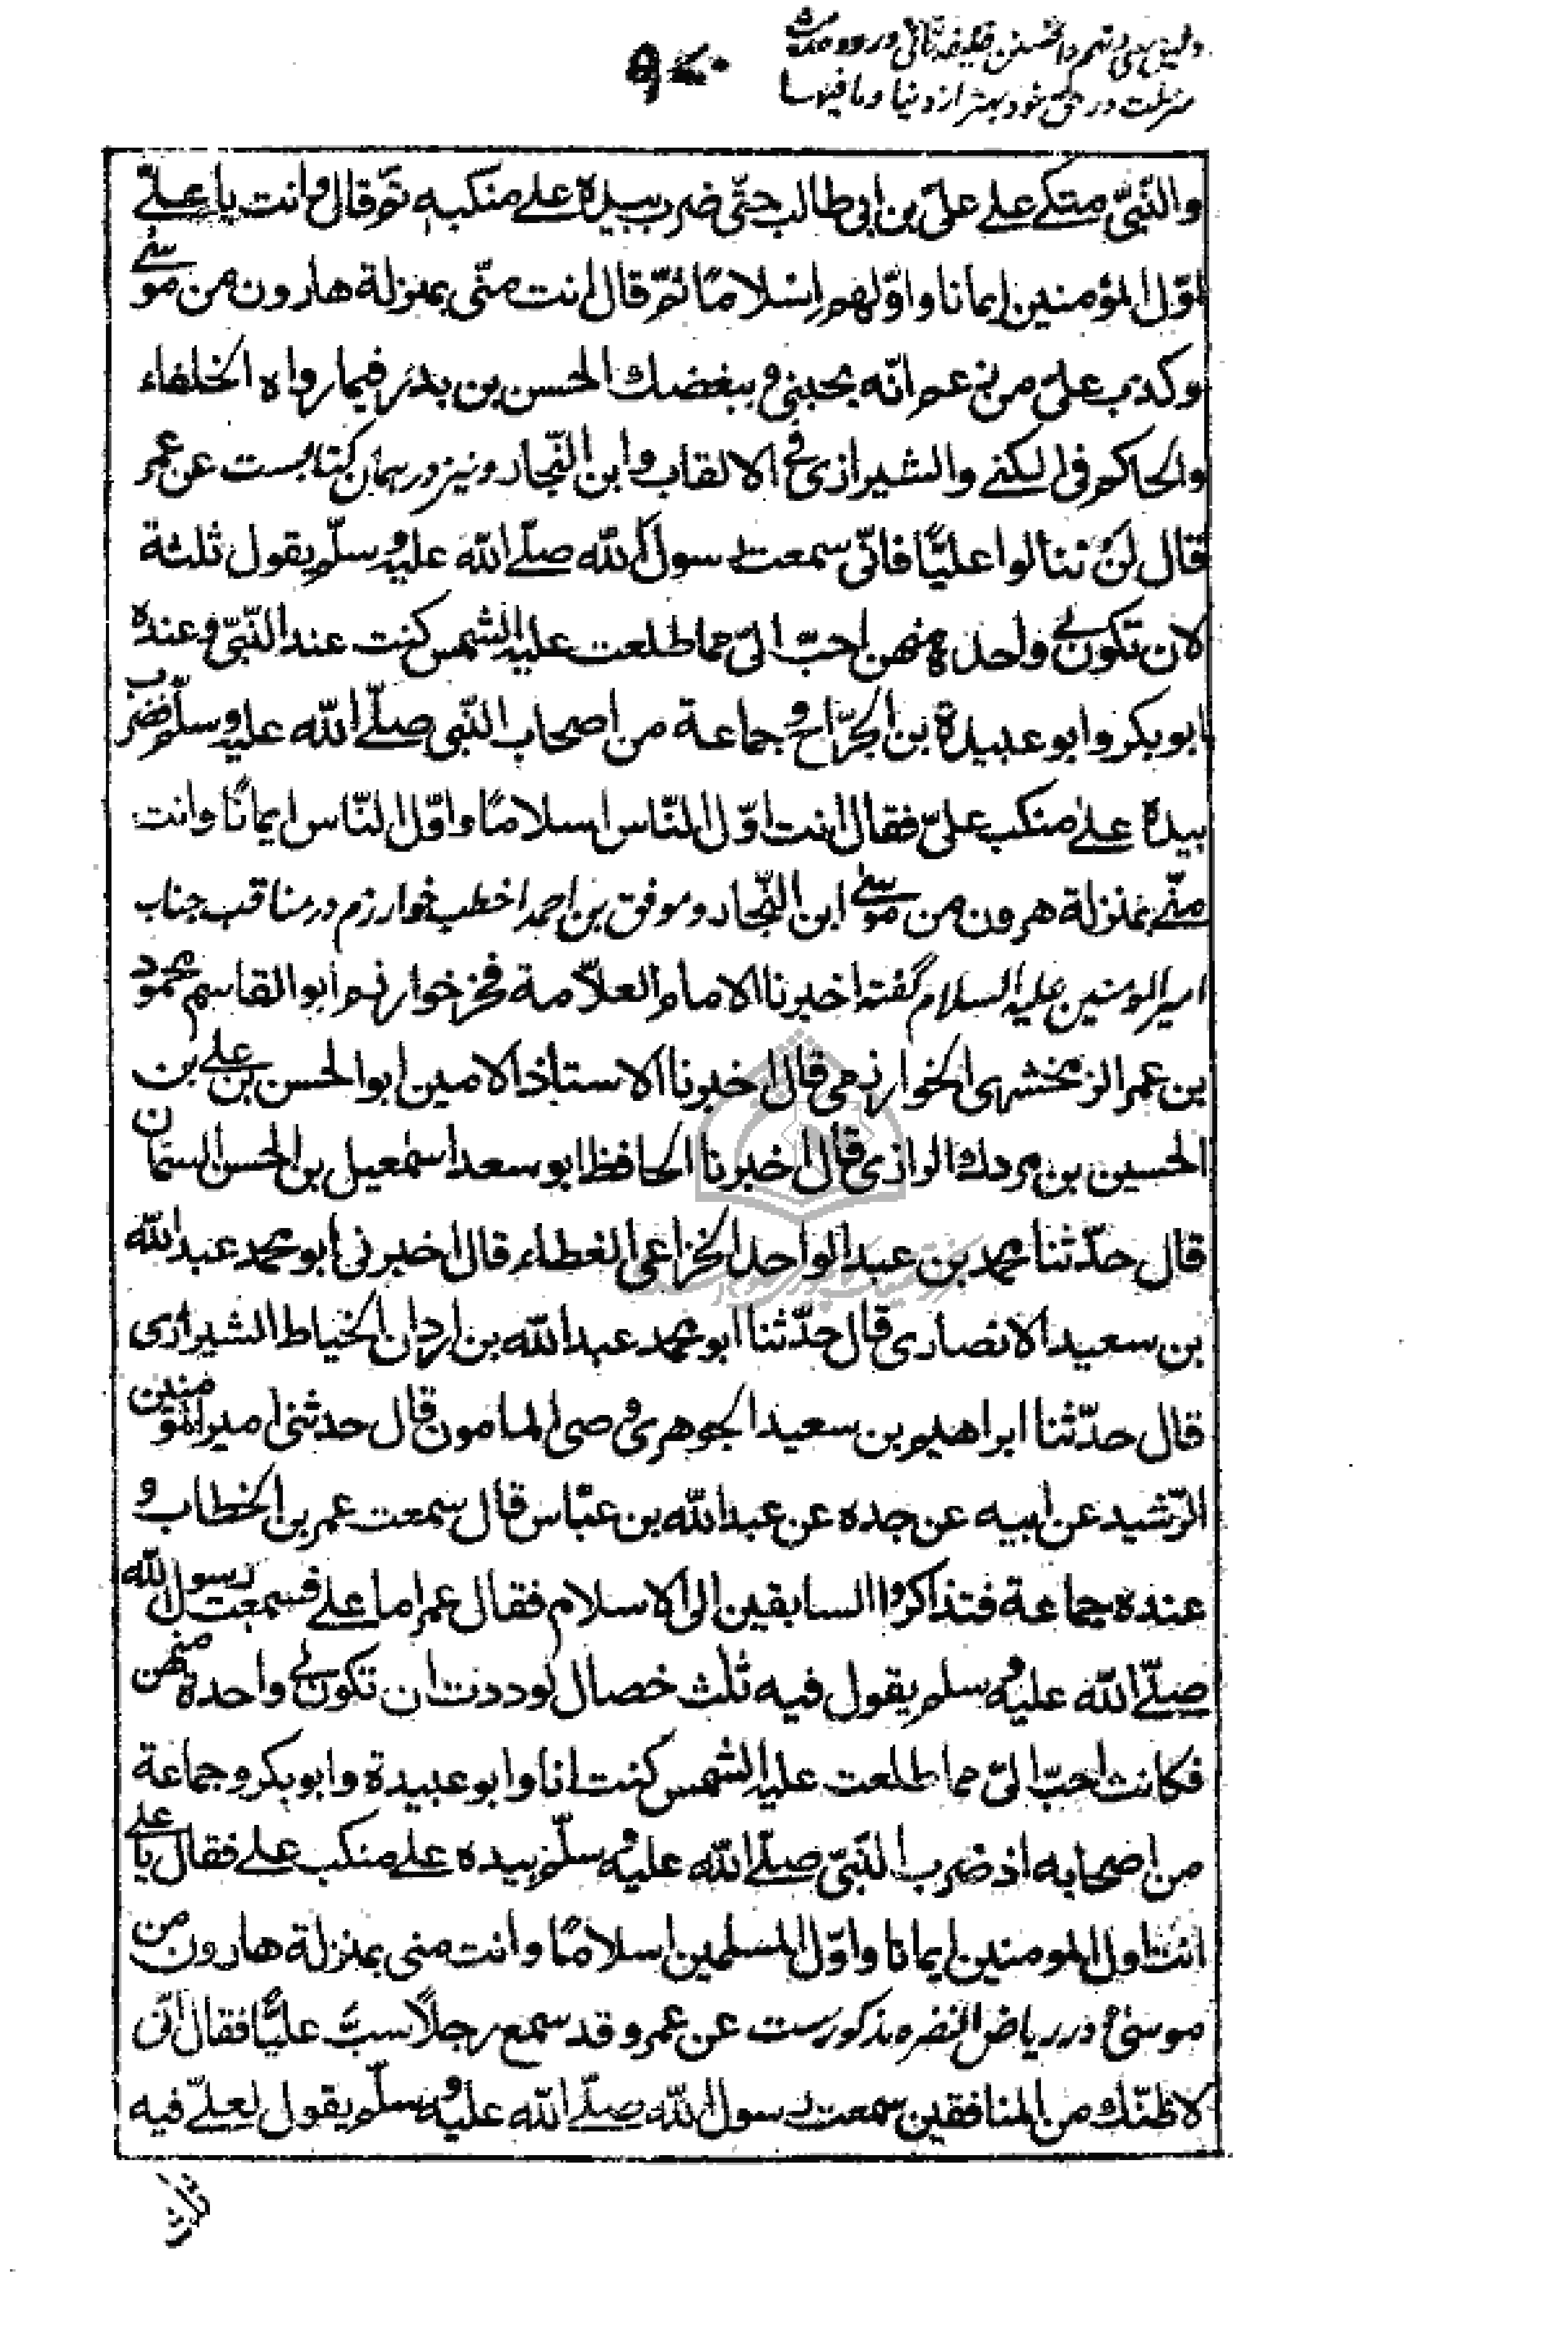 دلیل سی و نهم دانستن خلیفه ثانی ورود حدیث
منزلت در حق خود بهتر از دنیا و ما فیها
والنّبیّ متکے علے علیّ بن ابی طالب حتّی ضرب بیده علے منکبه ثم قال وانت یا علیّ
اوّل المؤمنین ایمانا واوّلهم اسلامًا ثمّ قال انت منّی بمنزلة هارون من موسٰے
وکذب علیّ من زعم انّه یحبنی و یبغضك الحسن بن بدر فیما رواه الخلفاء
والحاکم فی الکنے والشیرازی فی الالقاب وابن النّجار و نیز در همان کتابست عن عمر
قال لن تنالوا علیًّا فانّی سمعت رسول الله صلّے الله علیه وسلّم یقول ثلثة
لان تکون لی واحدة منهن احبّ الیّ مما طلعت علیه الشمس کنت عند النّبیّ وعنده
ابو بکر وابو عبیدة بن الجرّاح وجماعة من اصحاب النّبی صلّے الله علیه وسلّم فضرب
بیده علے منکب علیّ فقال انت اوّل النّاس اسلامًا واوّل النّاس ایمانًا وانت
منّے بمنزلة هرون من موسٰے ابن النّجار و موفق بن احمد اخطب خوارزم در مناقب جناب
امیر المومنین علیه السلام گفته اخبرنا الامام العلّامة فخر خوارزم ابو القاسم محمود
بن عمر الزمخشری الخوارزمی قال اخبرنا الاستاذ الامین ابو الحسن بن علے بن
الحسین بن مردك الرازی قال اخبرنا الحافظ ابو سعد اسمٰعیل بن الحسن السمّان
قال حدّثنا محمد بن عبد الواحد الخزاعی الغطاء قال اخبرنی ابو محمد عبد الله
بن سعید الانصاری قال حدّثنا ابو محمد عبد الله بن اردان الخیاط الشیرازی
قال حدّثنا ابراهیم بن سعید الجوهری وصی المامون قال حدثنی امیر المومنین
الرّشید عن ابیه عن جده عن عبد الله بن عبّاس قال سمعت عمر بن الخطاب و
عنده جماعة فتذاکروا السابقین الی الاسلام فقال عمر اما علے فسمعت رسول الله
صلّے الله علیه وسلم یقول فیه ثلث خصال لوددت ان تکون لی واحدة منهن
فکانت احبّ الیّ مما طلعت علیه الشمس کنت انا وابو عبیدة وابو بکر وجماعة
من اصحابه اذ ضرب النّبیّ صلّے الله علیه وسلّم بیده علے منکب علے فقال یا علے
انت اول المومنین ایمانا واوّل المسلمین اسلامًا وانت منی بمنزلة هارون من
موسٰی و در ریاض النضره مذکورست عن عمر وقد سمع رجلًا سبّ علیًّا فقال انّی
لاظنّك من المنافقین سمعت رسول الله صلّے الله علیه وسلّم یقول لعلیّ فیه
ثلث